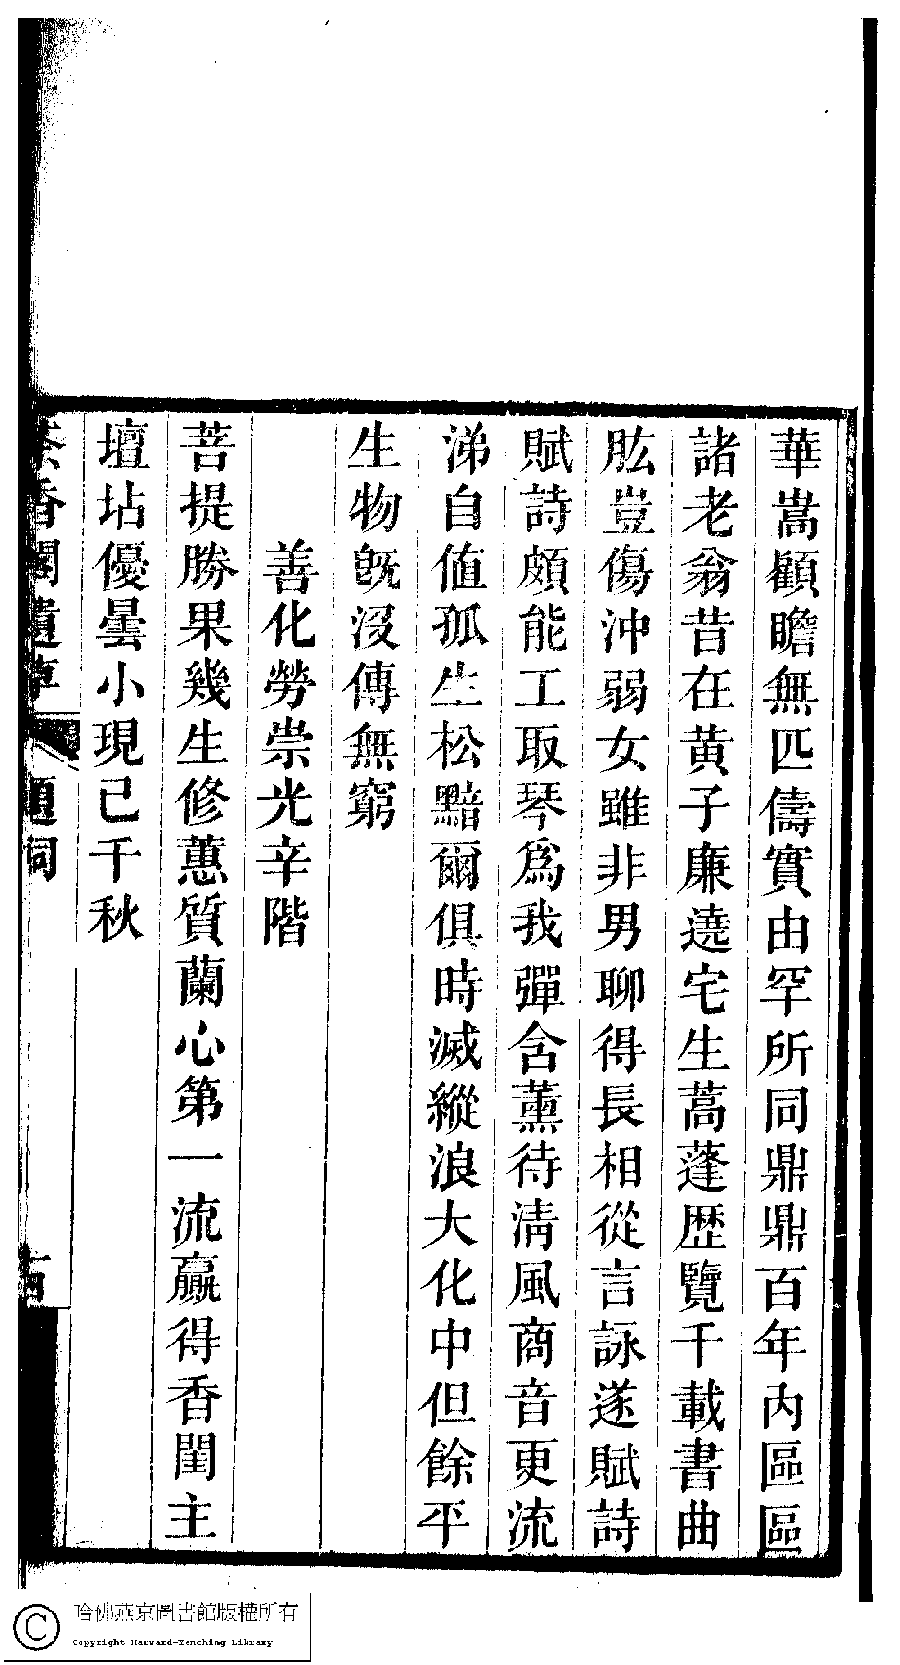 華嵩顧瞻無匹儔實由罕所同鼎鼎百年內區區
諸老翁昔在黃子廉遶宅生蒿蓬歷覽千載書曲
肱豈傷沖弱女雖非男聊得長相從言詠遂賦詩
賦詩頗能工取琴爲我彈含薰待淸風商音更流
涕自值孤生松黯爾俱時滅縱浪大化中但餘平
生物旣沒傳無窮
善化勞崇光辛階
菩提勝果幾生修蕙質蘭心第一流贏得香閨主
壇坫優曇小現已千秋
茶香閣遺草
題詞
哈佛燕京圖書館版權所有
Copyright Harvard-Yenching Library